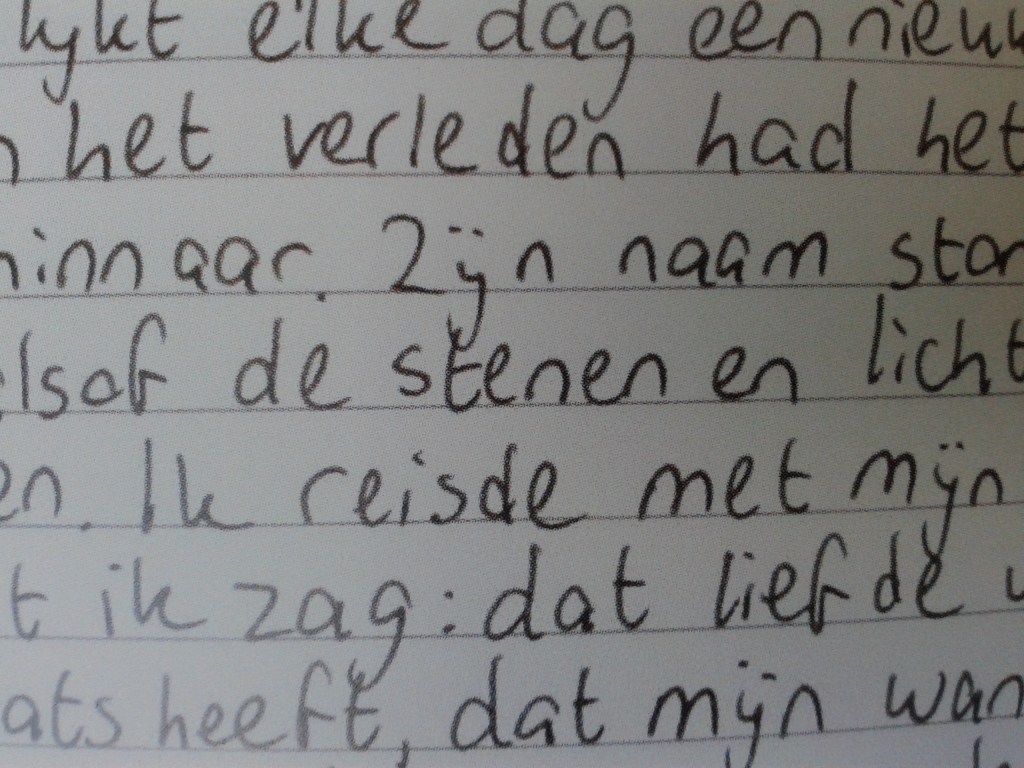 lykt elke dag een nieuw
het verleden had het
innaar. Zijn naam ston
lsof de stenen en licht
en. Ik reisde met mijn
t ik zag: dat liefde
ats heeft, dat mijn wan